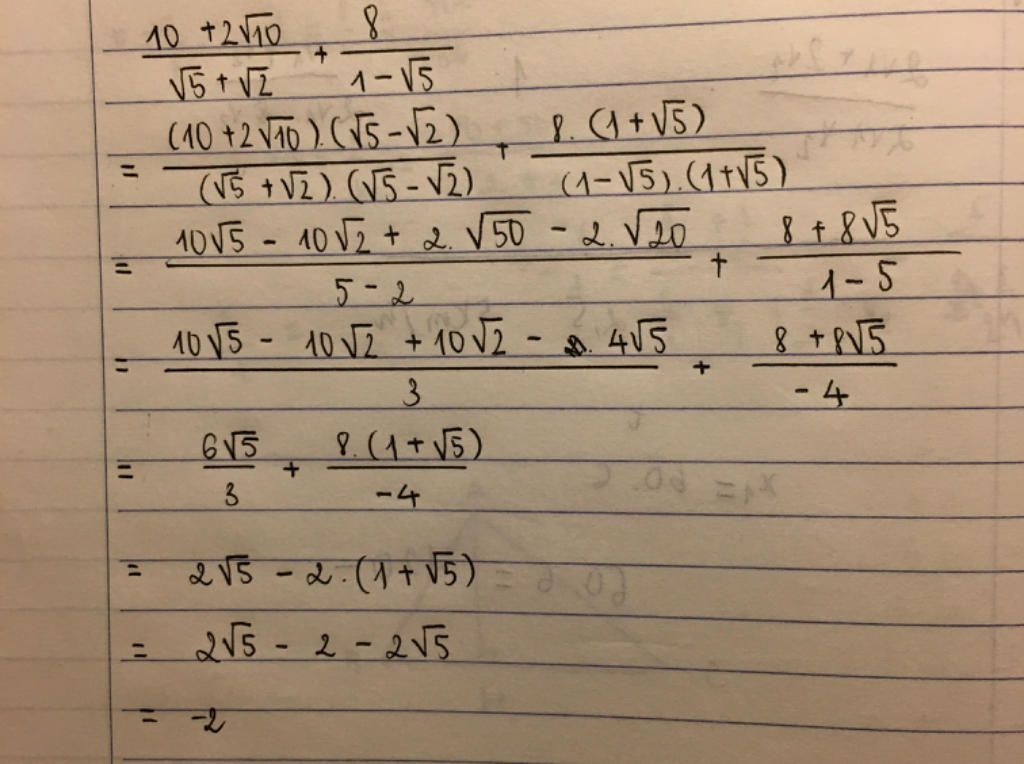 (10 + 2√10)/(√5 + √2) + 8/(1 - √5)
= ((10 + 2√10).(√5 - √2))/((√5 + √2).(√5 - √2)) + (8.(1 + √5))/((1 - √5).(1 + √5))
= (10√5 - 10√2 + 2.√50 - 2.√20)/(5 - 2) + (8 + 8√5)/(1 - 5)
= (10√5 - 10√2 + 10√2 - 4√5)/3 + (8 + 8√5)/(-4)
= 6√5/3 + (8.(1 + √5))/(-4)
= 2√5 - 2.(1 + √5)
= 2√5 - 2 - 2√5
= -2